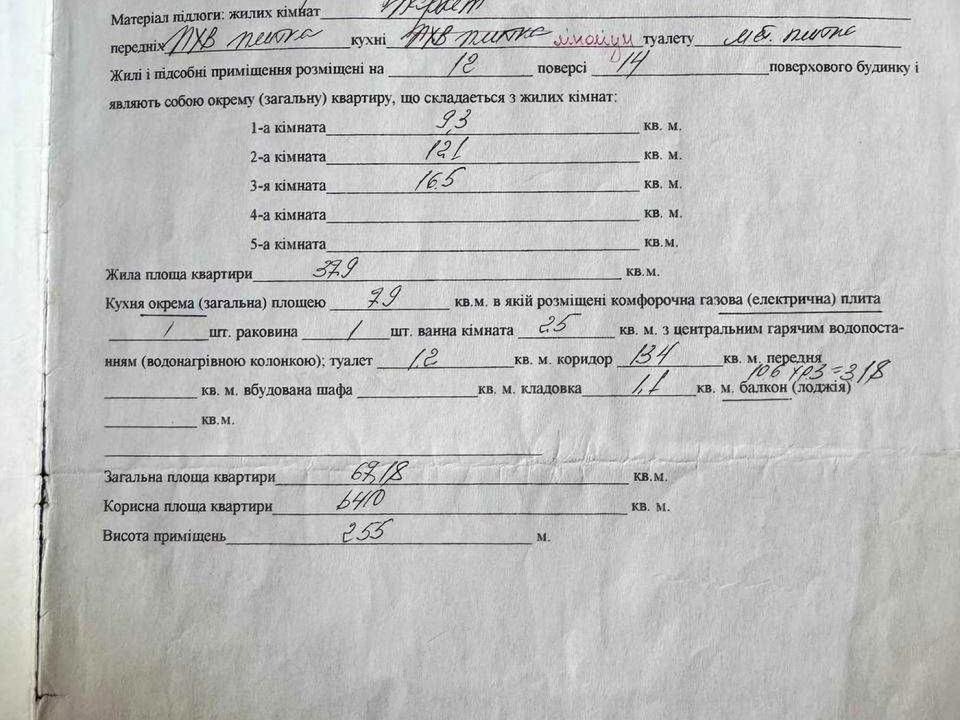 Матеріал підлоги: жилих кімнат паркет
передніх ПХВ плитка кухні ПХВ плитка лінолеум туалету мет. плитка
Жилі і підсобні приміщення розміщені на 12 поверсі 14 поверхового будинку і
являють собою окрему (загальну) квартиру, що складаеться з жилих кімнат:
1-а кімната 9,3 кв. м.
2-а кімната 12,1 кв. м.
3-я кімната 16,5 кв. м.
4-а кімната кв. м.
5-а кімната кв.м.
Жила площа квартири 37,9 кв.м.
Кухня окрема (загальна) площею 7,9 кв.м. в якій розміщені комфорочна газова (електрична) плита
1 шт. раковина 1 шт. ванна кімната 2,5 кв. м. з центральним гарячим водопоста-
нням (водонагрівною колонкою); туалет 1,2 кв. м. коридор 13,4 кв. м. передня
10,6 х 0,3 = 3,18
кв. м. вбудована шафа кв. м. кладовка 1,1 кв. м. балкон (лоджія)
кв.м.
Загальна площа квартири 67,18 кв.м.
Корисна площа квартири 64,0 кв. м.
Висота приміщень 2,55 м.